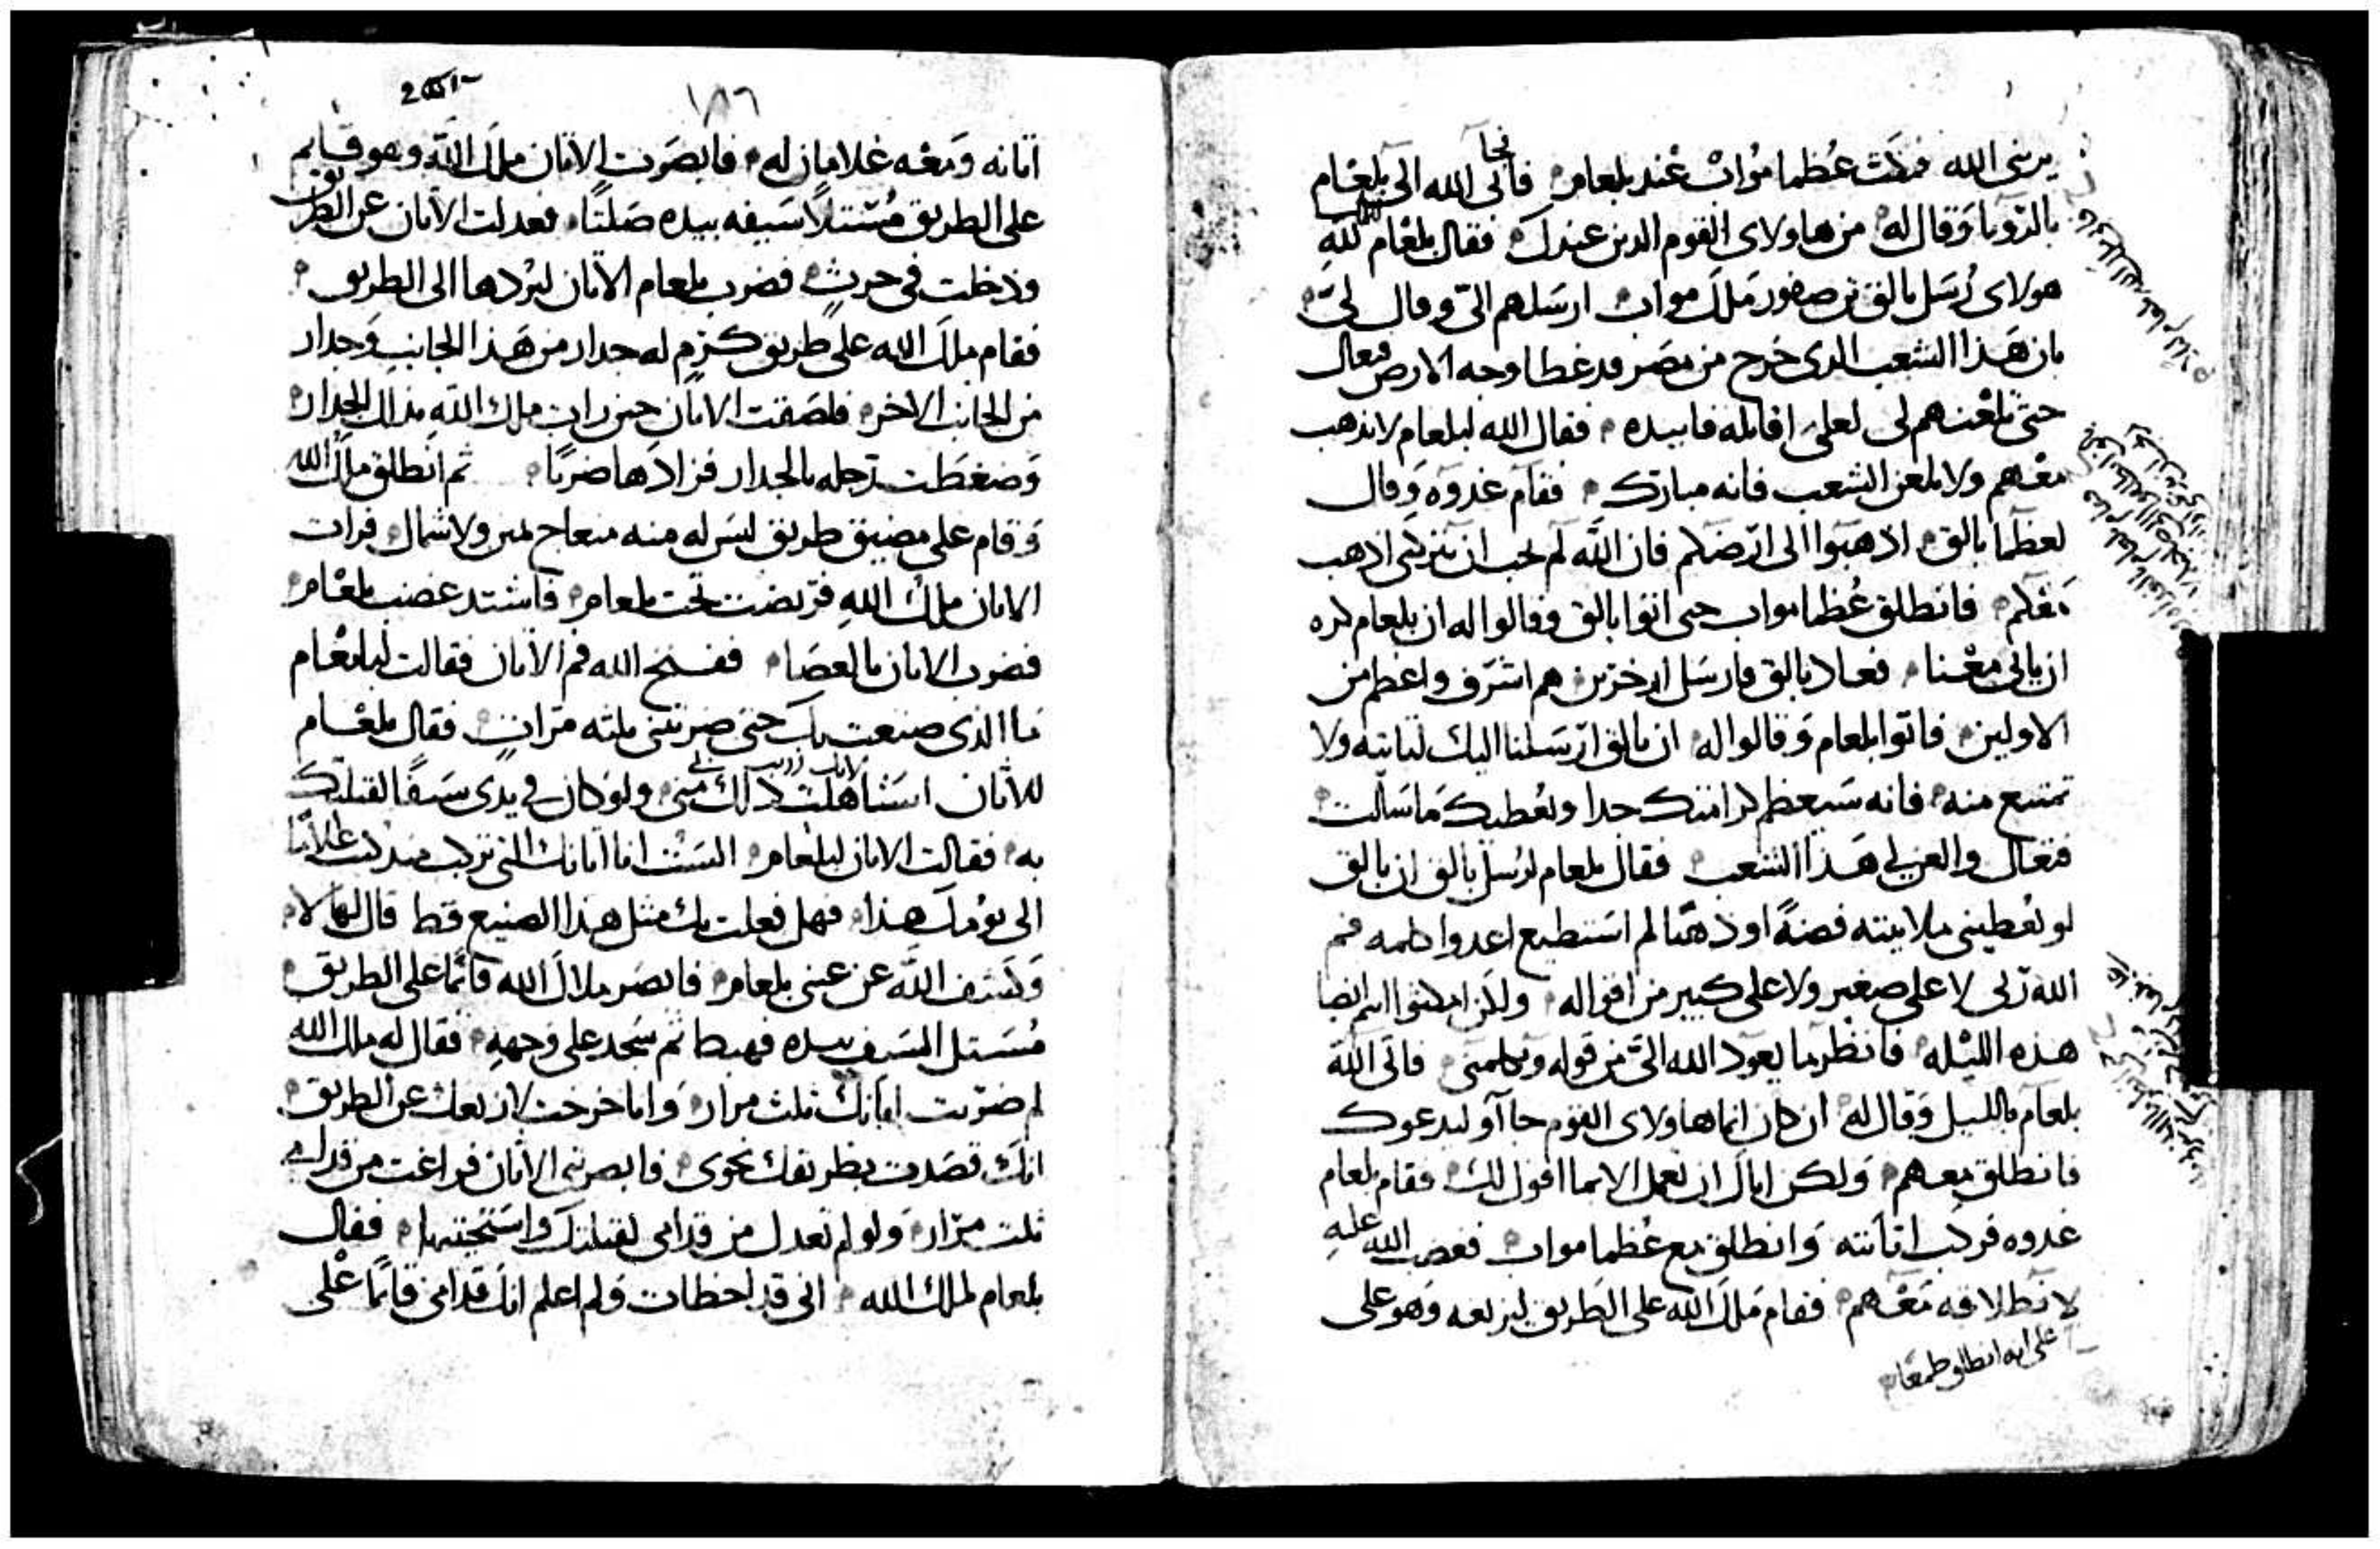 يريني الله فمكث عُظما مُواب عند بلعام فأتى الله الى بلعام
فجا
بالرويا وقال له من هاولاى القوم الذين عندك فقال بلعام لله
هولاى رُسَل بالق بن صفور ملك مواب ارسَلهم الىّ وقال لىّ
بان هذا الشعب الدى خرج من مصر قد غطا وجه الارض فتعال
حتى تلعنهم لى لعلى اقاتله فابيده فقال الله لبلعام لا تذهب
معهم ولا تلعن الشعب فانه مبارك فقام غدوه وقال
لعظما بالق اذهبوا الى ارضكم فان الله لم يحب ان يتركنى اذهب
معكم فانطلق عُظما مواب حتى اتوا بالق وقالوا له ان بلعام كره
ان ياتى معنا فعاد بالق فارسَل اخرين هم اشرف واعظم من
الاولين فاتوا بلعام وقالوا له ان بالق ارسَلنا اليك لتاتيه ولا
تمتنع منه فانه سيعظم كرامتك جدا ويُعطيك ما سَالت
فتعال والعن لى هذا الشعب فقال بلعام لرُسل بالق ان بالق
لو يُعطينى ملا بيته فضةً او ذهبًا لم استطيع اعدوا كلمه فم
الله ربى لا على صغير ولا على كبير من اقواله ولكن امكثوا انتم ايضا
هذه الليله فانظر ما يعود الله الىّ من قوله ويكلمنى فاتى الله
بلعام بالليل وقال له ان كان انما هاولاى القوم جاآو ليدعوك
فانطلق معهم ولكن اياك ان تعمل الا بما اقول لك فقام بلعام
غدوه فركب اتانته وانطلق مع عُظما مواب فغضب الله عليه
لانطلاقه معهم فقام مَلَك الله على الطريق ليزيغه وهو على
على انه انطلق معهم
١٨٦
اتانه ومعه غلامان له فابصَرت الاتان ملك الله وهو قايم
على الطريق مُستلاً سَيفه بيده صَلتًا فعدلت الاتان عن الطريق
ودخلت فى حرث فضرب بلعام الاتان ليردها الى الطريق
فقام ملك الله على طريق كرم له جدار من هَذا الجانب وجدار
من الجانب الاخر فلصَقت الاتان حين رات ملك الله بذلك الجدار
وَضغطت رجله بالجدار فزادها ضربًا ثم انطلق ملك الله
وقام على مضيق طريق ليسَ له منه منعاج يمين ولا شمال فرات
الاتان ملك الله فربضت تحت بلعام فاشتد غضب بلعام
فضرب الاتان بالعصَا ففتح الله فم الاتان فقالت لبلعام
ما الذى صنعت بك حتى ضربتنى ثلثه مرات فقال بلعام
للاتان استاهلت ذلك منى ولو كان فى يدى سَيفًا لقتلتك
به فقالت الاتان لبلعام السَت انا اتانك التى تركب منذ كنت غلامًا
الى يومك هذا فهل فعلت بك مثل هذا الصنيع قط قال لها لا
وَكشف الله عن عينى بلعام فابصَر ملاك الله قائمًا على الطريق
مُستل السَيف بيده فهبط ثم سَجد على وجهه فقال له ملك الله
لم ضربت اتانك ثلث مرار وانا خرجت لازيعك عن الطريق
انك قصَدت بطريقك نحوى فابصرتنى الاتان فراغت من قدامى
ثلث مرار ولو لم تعدل من قدامى لقتلتك واستحيتها فقال
بلعام لملك الله انى قد اخطات ولم اعلم انك قدامى قائمًا على